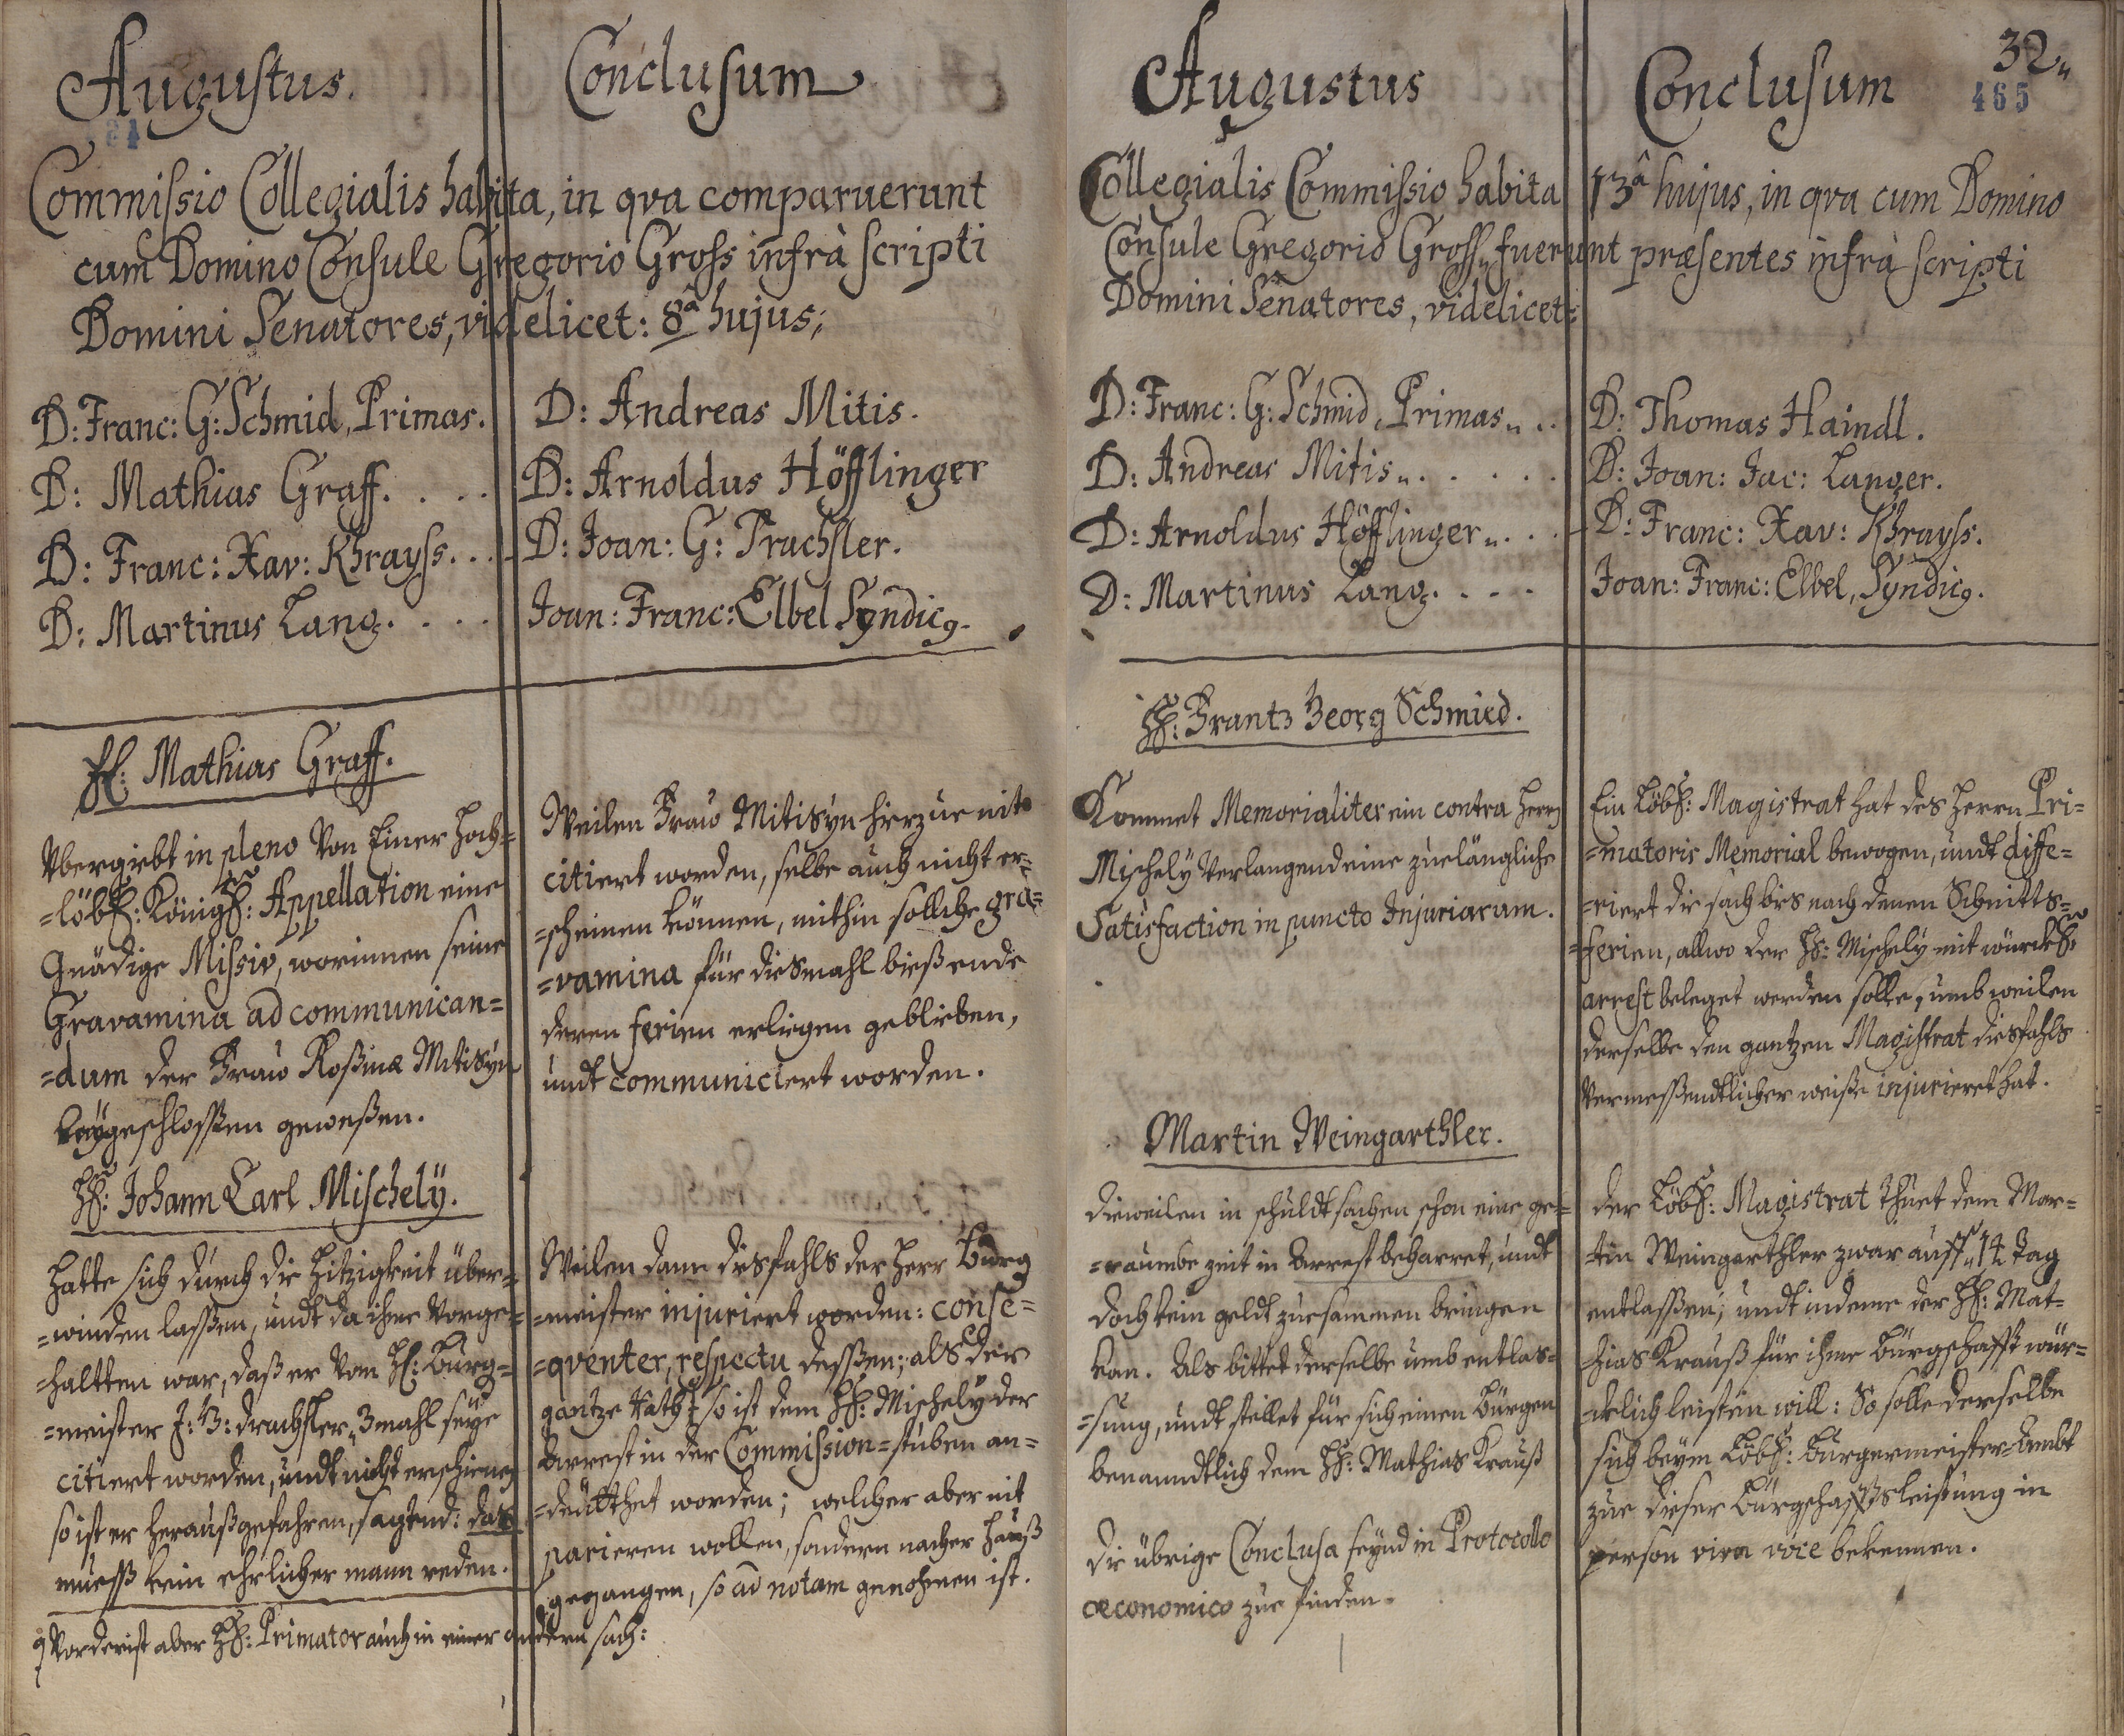 Augustus.
Conclusum
Commissio Collegialis habita, in qva comparuerunt
cum Domino Consule Gregorio Gross infrà scripti
Domini Senatores, videlicet: 8â hujus;
D: Franc: G: Schmid, Primas.
D: Mathias Graff. . . .
D: Franc: Xav: Khrayss. . . .
D: Martinus Lang. . . .
D: Andreas Mitis.
D: Arnoldus Höfflinger
D: Joan: G: Trachsler.
Joan: Franc: Elbel Syndicg.
H: Mathias Graff.
Vbergiebt in pleno Von Einer Hoch=
=löbl: Königl: Appellation eine
Gnädige Missiv, worinnen seine
Gravamina ad communican=
=dum der Fraw Rosinæ Mitisÿn
beÿgeschlossen gewessen.
Weilen Fraw Mitisÿn hierzue nit
citiert worden, selbe auch nicht er=
=scheinen können, mithin solche gra=
=vamina für diesmahl bieß ende
deren ferien erliegen geblieben,
undt communiciert worden.
H: Johann Carl Mischelÿ.
Hatte sich durch die Hitzigkeit über=
=winden lassen, undt da ihme Vorge=
=haltten war, daß er Vom H: Burg=
=meister J: G: drachsler 3mahl seÿe
citiert worden, undt nicht erschienen
so ist er herauß gefahren, sagend: das
muess kein ehrlicher mann reden.
Weilen dann diesfahls der Herr Burg
=meister injuriert worden: conse=
=qventer, respectu dessen; als der
gantze Rath so ist dem H: Mischelÿ der
Arrest in der Commission=stuben an=
=deutthet worden; welcher aber nit
parieren wollen, sondern nacher Hauß
gegangen, so ad notam genohmen ist.
Vorderist aber H: Primator auch in einer andern sach:
Augustus
Conclusum
32"
465
Collegialis Commissio habita 13â hujus, in qva cum Domino
Consule Gregorio Gross fuerunt præsentes infrà scripti
Domini Senatores, videlicet:
D: Franc: G: Schmid, Primas . .
D: Andreas Mitis . . . . .
D: Arnoldus Höfflinger . . .
D: Martinus Lang. . . .
D: Thomas Haindl.
D: Joan: Jac: Langer.
D: Franc: Xav: Khrayss.
Joan: Franc: Elbel, Syndicg.
H: Frantz Georg Schmied.
Kommet Memorialiter ein contra Herrn
Mischelÿ Verlangend eine zuelängliche
Satisfaction in puncto Injuriarum.
Ein Löbl: Magistrat hat des Herrn Pri=
=matoris Memorial bewogen, undt diffe=
=riert die sach bis nach denen Schnitts=
=ferien, allwo der H: Mischelÿ mit würckl:
arrest beleget werden solle, umb weilen
derselbe den gantzen Magistrat diesfahls
Vermessendtlicher weise injurieret hat.
Martin Weingarthler.
Dieweilen in schuldtsachen schon eine ge=
=raumbe zeit in Arrest beharret, undt
doch kein geldt zuesammen bringen
kan. Als bittet derselbe umb entlas=
=sung, undt stellet für sich einen Bürgen
benanndtlich dem H: Mathias Krauß
Der Löbl: Magistrat thuet dem Mar=
=tin Weingarthler zwar auff 14 Tag
entlassen; undt indeme der H: Mat=
=hias Krauß für ihme Bürgschafft wür=
=cklich leisten will: So solle derselbe
sich beÿm Löbl: Burgermeister=Ambt
zue dieser Bürgschafftsleistung in
person viva voce bekennen.
Die übrige Conclusa seÿnd in Protocollo
œconomico zue finden.